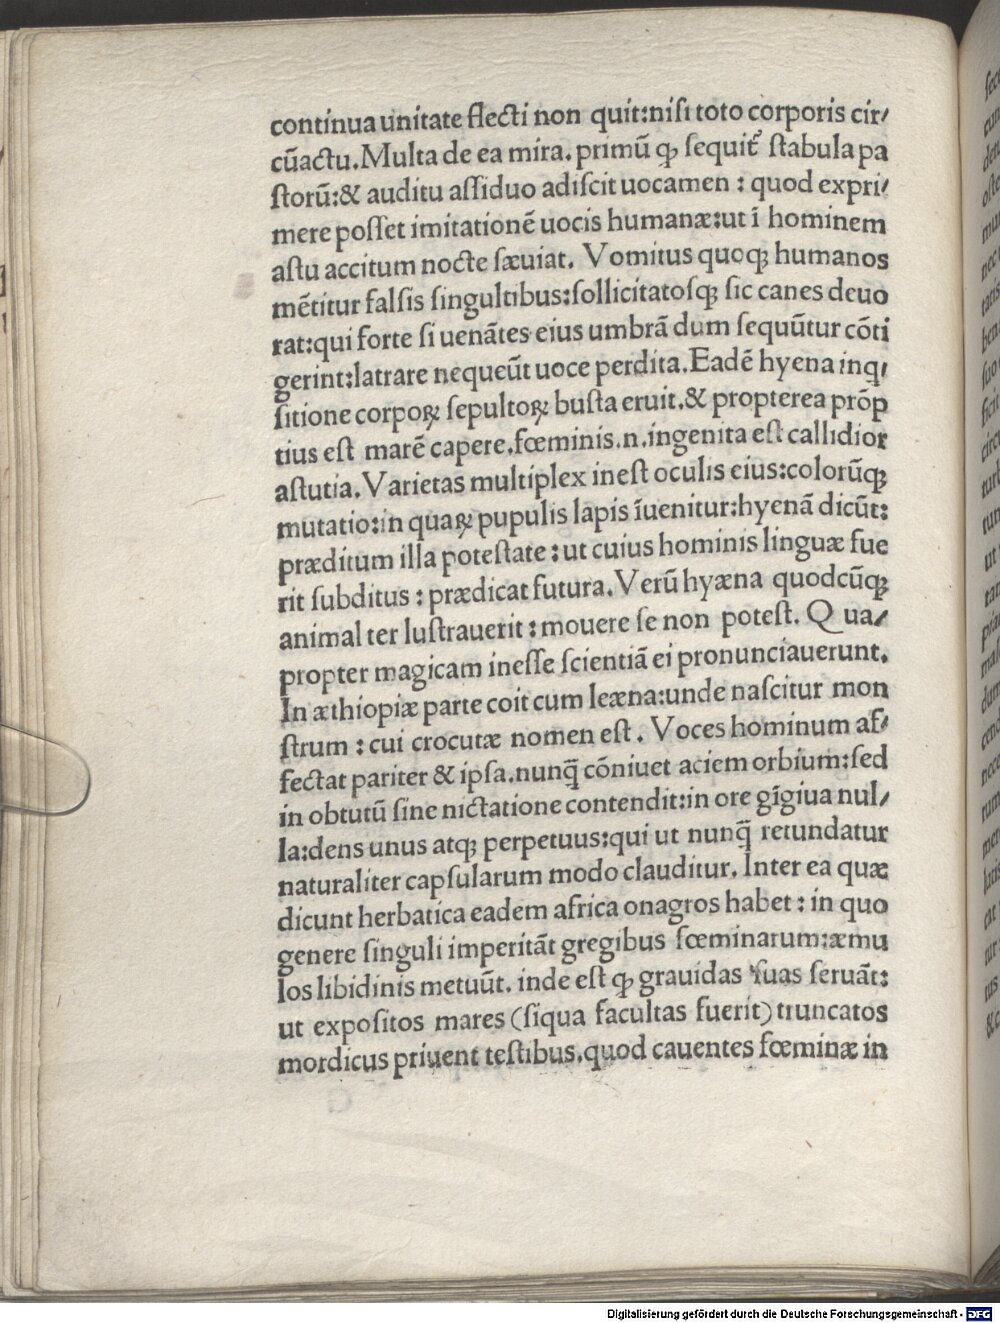 continua unitate flecti non quit:nisi toto corporis cir/
cūactu. Multa de ea mira. primū ꝙ sequit᷑ stabula pa
storū:& auditu assiduo adiscit uocamen : quod expri/
mere posset imitationē uocis humanæ:ut ī hominem
astu accitum nocte sæuiat. Vomitus quoqꝫ humanos
mētitur falsis singultibus:sollicitatosqꝫ sic canes deuo
rat:qui forte si uenātes eius umbrā dum sequūtur cōti
gerint:latrare nequeūt uoce perdita. Eadē hyena inq/
sitione corpoꝝ sepultoꝝ busta eruit.& propterea prōp
tius est marē capere. fœminis.n.ingenita est callidior
astutia. Varietas multiplex inest oculis eius:colorūqꝫ
mutatio:in quaꝝ pupulis lapis īuenitur:hyenā dicūt:
præditum illa potestate : ut cuius hominis linguæ fue
rit subditus : prædicat futura. Verū hyæna quodcūqꝫ
animal ter lustrauerit : mouere se non potest. Qua/
propter magicam inesse scientiā ei pronunciauerunt.
In æthiopiæ parte coit cum leæna:unde nascitur mon
strum : cui crocutæ nomen est. Voces hominum af/
fectat pariter & ipsa.nunq̄ cōniuet aciem orbium:sed
in obtutū sine nictatione contendit:in ore gīgiua nul/
la:dens unus atqꝫ perpetuus:qui ut nunq̄ retundatur
naturaliter capsularum modo clauditur. Inter ea quæ
dicunt herbatica eadem africa onagros habet : in quo
genere singuli imperitāt gregibus fœminarum:æmu
los libidinis metuūt. inde est ꝙ grauidas suas seruāt:
ut expositos mares (siqua facultas fuerit) truncatos
mordicus priuent testibus.quod cauentes fœminæ in
Digitalisierung gefördert durch die Deutsche Forschungsgemeinschaft - DFG